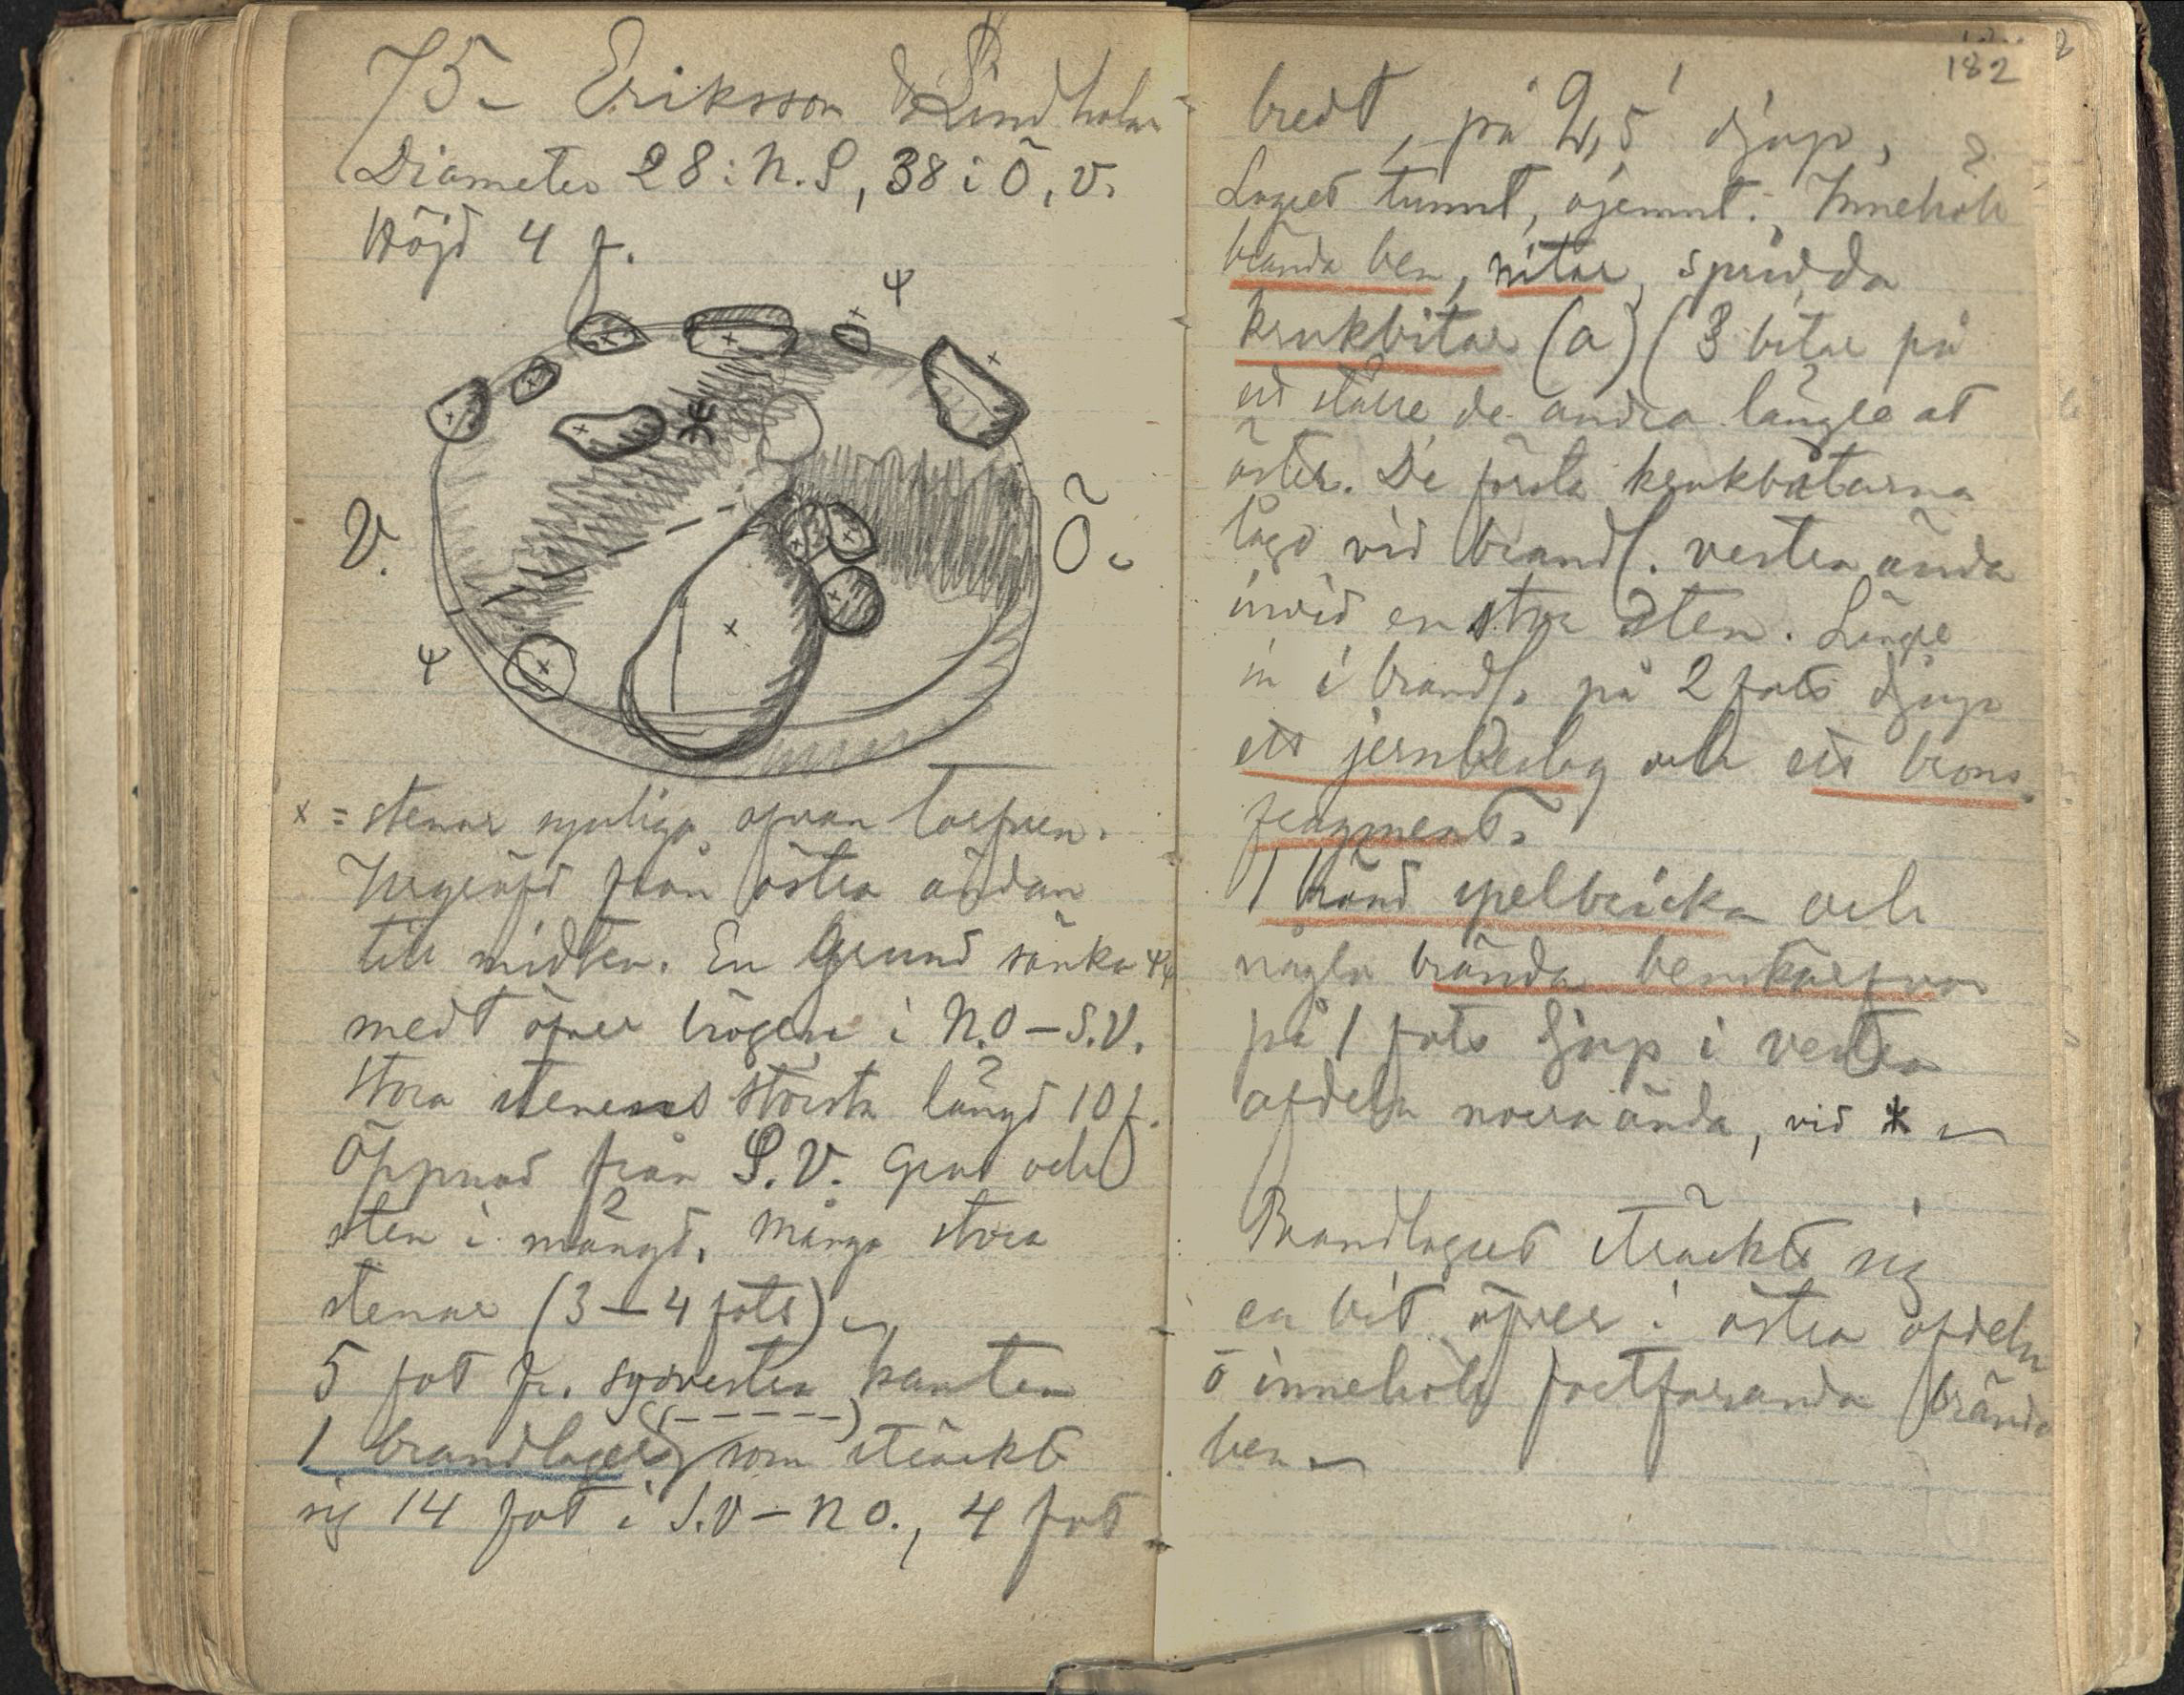 75 - Eriksson & Lindholm
Diameter 28 i N.S, 38 i Ö.V.
Höjd 4 f.
ψ
V.
Ö.
ψ
x = stenar synliga ofvan torfven.
Urgräfd från östra ändan
till midten. En grund sänka ψ-ψ
medt öfver högen i N.O - S.V.
Stora stenens största längd 10 f.
Öppnad från S.V. Grus och
sten i mängd. Många stora
stenar (3-4 fots)
5 fot fr. sydvestra kanten
1 brandlager, som sträckt
sig 14 fot i S.V - N O., 4 fot
182
bredt, på 2,5' djup,
Lagret tunnt, ojemnt. Inneholl
brända ben, nitar, spridda
krukbitar (a) (3 bitar på
ett ställe de andra längre åt
öster. De första krukbitarna
lågo vid brandl. vestra ända
invid en stor sten. Längre
in i brandl. på 2 fots djup
ett jernbeslag och ett brons-
fragment.
1 bränd spelbricka och
några brända benskärfvor
på 1 fots djup i vestra
afdeln norra ända, vid *
Brandlagret sträckt sig
en bit öfver i östra afdeln
o innehöll fortfarande brända
ben